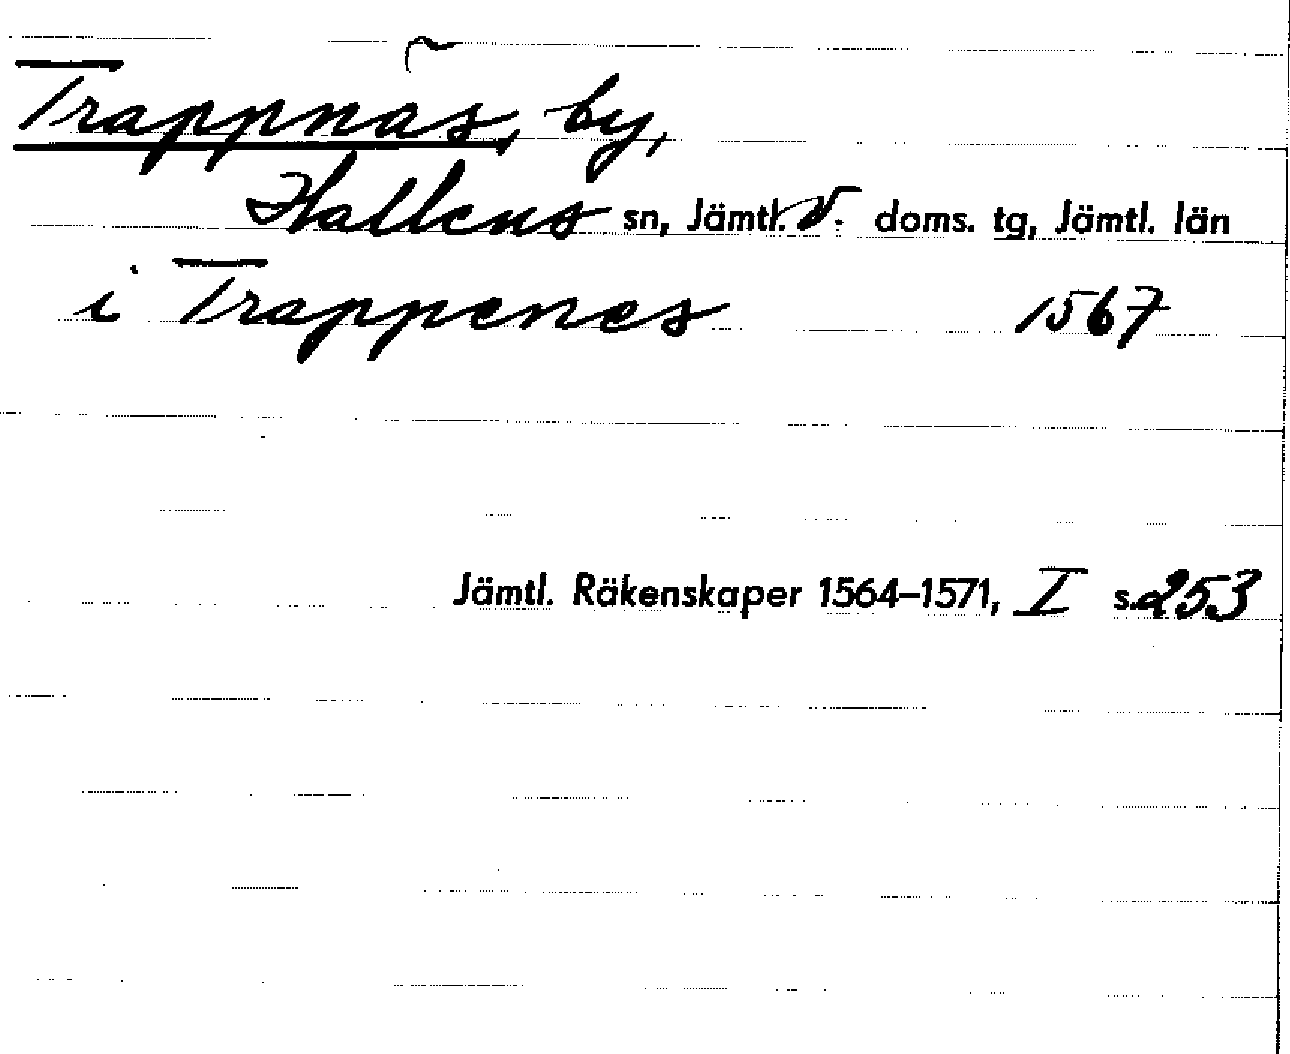 Trappnäs, by,
Hallens sn, Jämtl. V. doms. tg, Jämtl. län
i Trappenes 1567
Jämtl. Räkenskaper 1564–1571, I s. 253